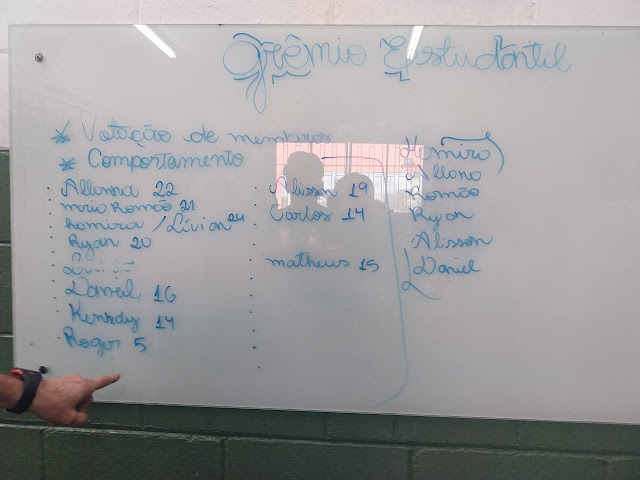 Grêmio Estudantil
* Votação de membros
* Comportamento
· Allanna 22
· maria Romão 21
· Homira / Lívian 24
· Ryan 20
· Daniel 16
· Kenedy 14
· Roger 5
· Alisson 19
· Carlos 14
· matheus 15
Homira
Allana
Romão
Ryan
Alisson
Daniel